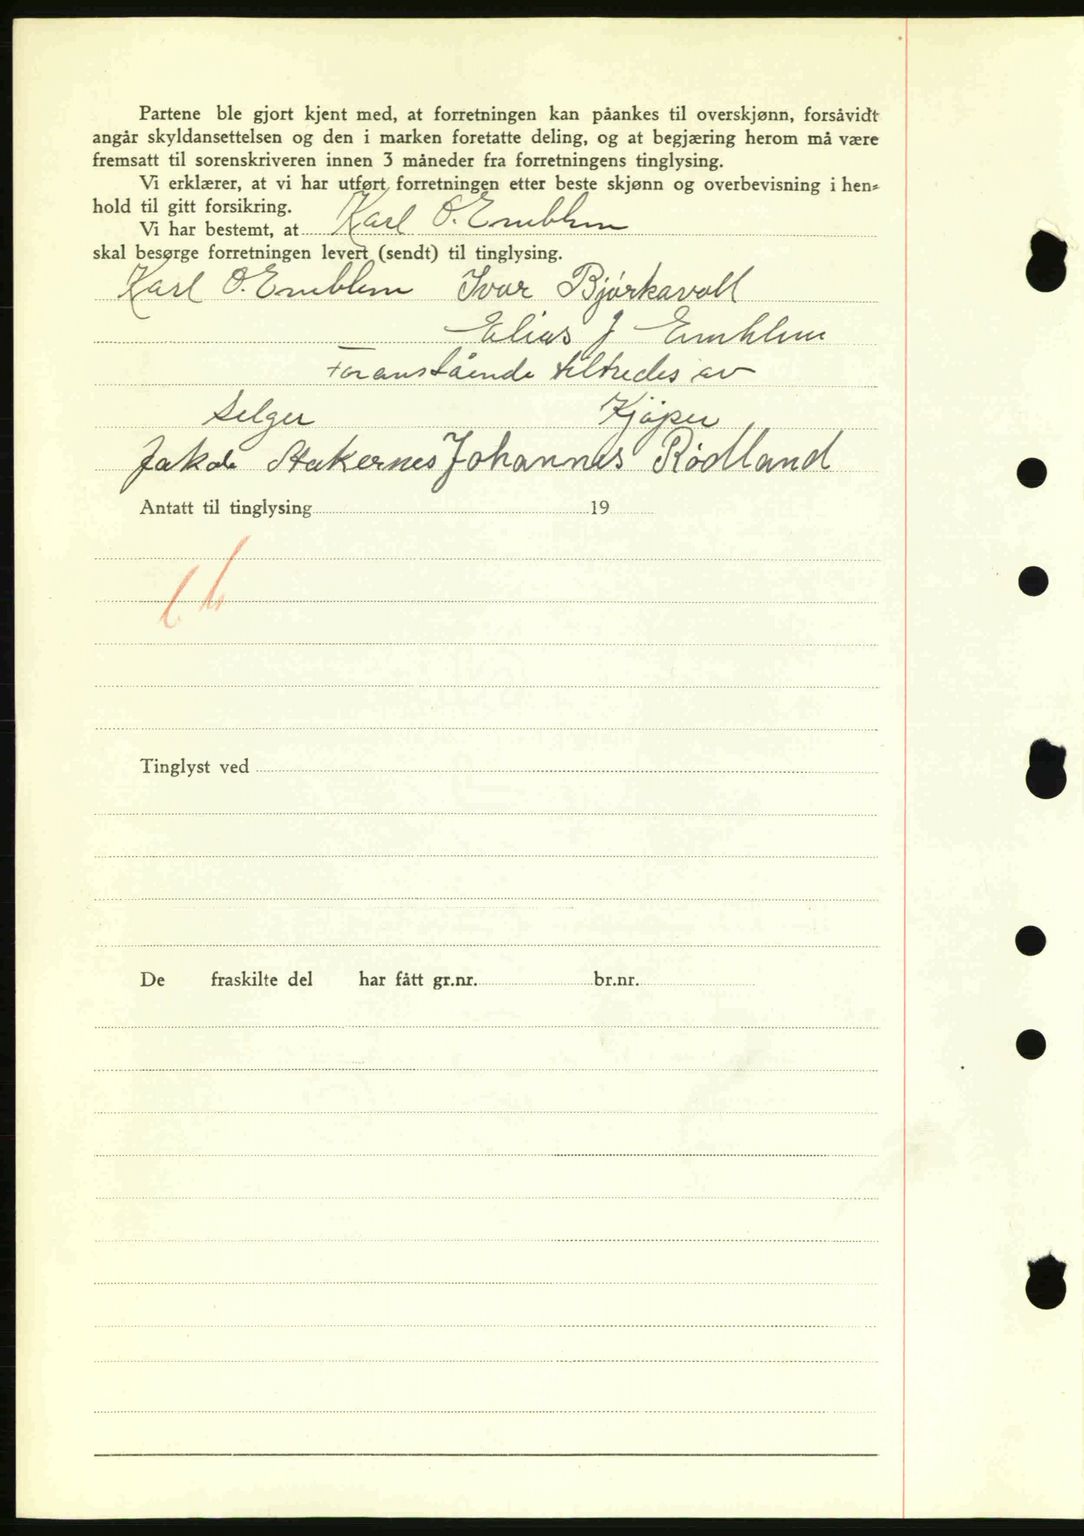 Partene ble gjort kjent med, at forretningen kan påankes til overskjønn, forsåvidt
angår skyldansettelsen og den i marken foretatte deling, og at begjæring herom må være
fremsatt til sorenskriveren innen 3 måneder fra forretningens tinglysing.
Vi erklærer, at vi har utført forretningen etter beste skjønn og overbevisning i hen-
hold til gitt forsikring.
Vi har bestemt, at Karl O. Emblem
skal besørge forretningen levert (sendt) til tinglysing.
Karl O. Emblem Ivar Bjørkavoll
Elias J Emblem
Foranstående tiltredes av
Selger Kjøper
Jakob Stakernes Johannes Rødland
Antatt til tinglysing 19
Tinglyst ved
De fraskilte del har fått gr.nr. br.nr.